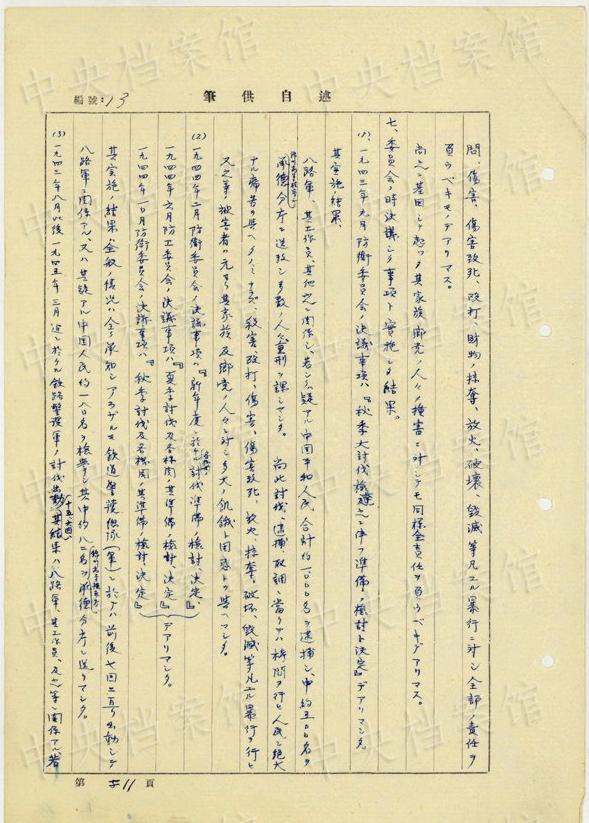 編號:13
筆供自述
問、傷害、傷害致死、殴打、財物ノ掠奪、放火、破壊、毀滅等凡ユル暴行ニ対シ全部ノ責任ヲ
負フベキモノデアリマス。
尚之ニ基因シテ起ツタ其家族郷党ノ人々ノ損害ニ対シテモ同様全責任ヲ負フベキデアリマス。
七、委員会ノ時決議シタ事項ト実施シタ結果。
(1)、一九四三年九月防衛委員会ノ決議事項ハ『秋季大討伐 之ニ伴フ準備ノ検討ト決定』デアリマシタ。
其実施ノ結果、
八路軍、其工作員、其他之ニ関係シ、若シクハ疑アル中国平和人民合計約一、〇〇〇名ヲ逮捕シ、中約五〇〇名ヲ
承徳分庁ニ送致シ多数ノ人ヲ重刑ヲ課シマシタ。尚此討伐、逮捕、取調ニ當リテハ拷問ヲ行ヒ人民ニ絶大
ナル痛苦ヲ與ヘタノミナラズ、殺害、殴打、傷害、傷害致死、放火、掠奪、破壊、毀滅等凡ユル暴行ヲ行ヒ
又之等被害者ハ元ヨリ其家族及郷党ノ人々ニ対シ多大ノ飢餓ト困惑トヲ與ヘマシタ。
(2) 一九四四年二月防衛委員会ノ決議事項ハ『新年度ニ於ケル討伐準備ノ検討、決定、』
一九四四年六月防工委員会ノ決議事項ハ『夏季討伐及各機関ノ其準備ノ検討、決定』デアリマシタ。
一九四四年一〇月防衛委員会ノ決議事項ハ『秋季討伐及各機関ノ其準備ノ検討、決定』
其実施ノ結果、全般ノ情況ハ全ク承知シアラザルモ鉄道警護総隊(軍)ニ於テハ前後七回ニ亘リ出動シテ
八路軍ニ関係アル、又ハ其疑アル中国人民約一八〇名ヲ検挙シ其中約八二名ヲ承徳分庁ニ送リマシタ。
(3) 一九四三年八月以後一九四五年三月迄ニ於ケル鉄路警護軍ノ討伐出動(十五、六回)其結果ハ八路軍、其工作員、及之等ニ関係アル者
第 11 頁
中央档案馆